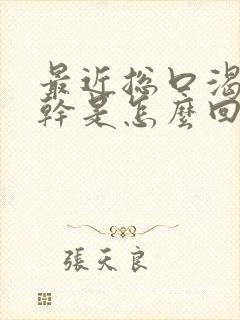 最近总口渴
幹是怎麼回
張天良